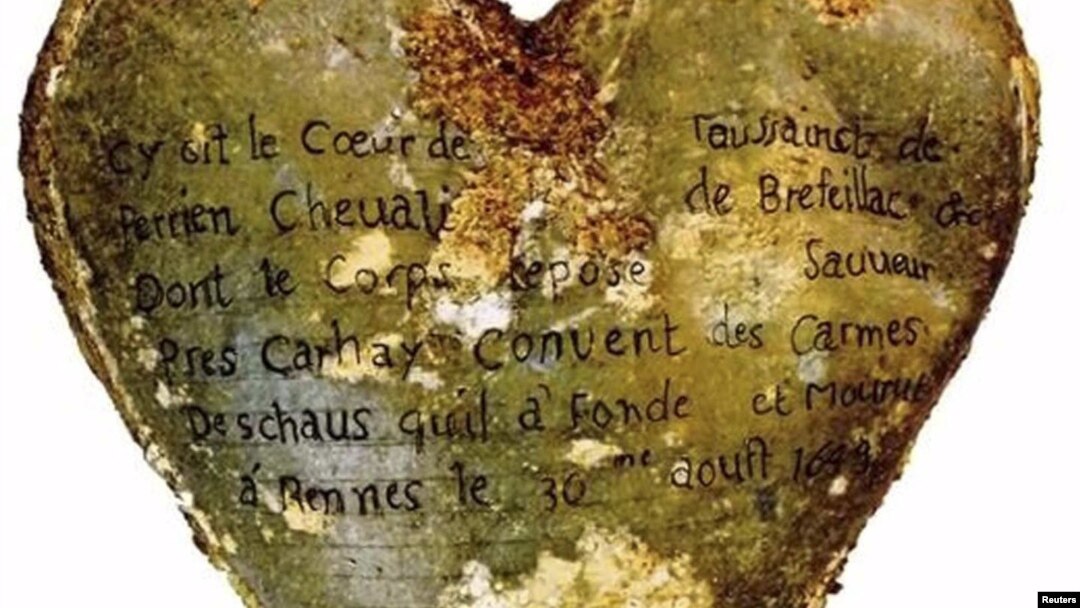 Cy Git le Cœur de Toussainct de
Perrien Cheuali de Brefeillac
Dont le Corps repose Sauueur
Pres Carhay Convent des Carmes
Deschaus quil a' Fondé et Mourut
á Rennes le 30me aoust 1649
Reuters